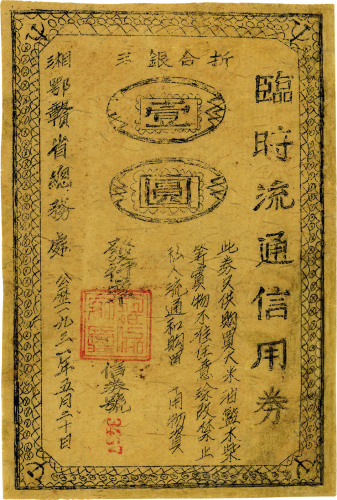 折合銀
臨時流通信用券
壹
圓
此券只供購買大米油鹽木柴
等實物不准任意塗改禁止
私人流通和購用
發行
信券號
湘鄂贛省總務處
公曆一九三一年五月二十日